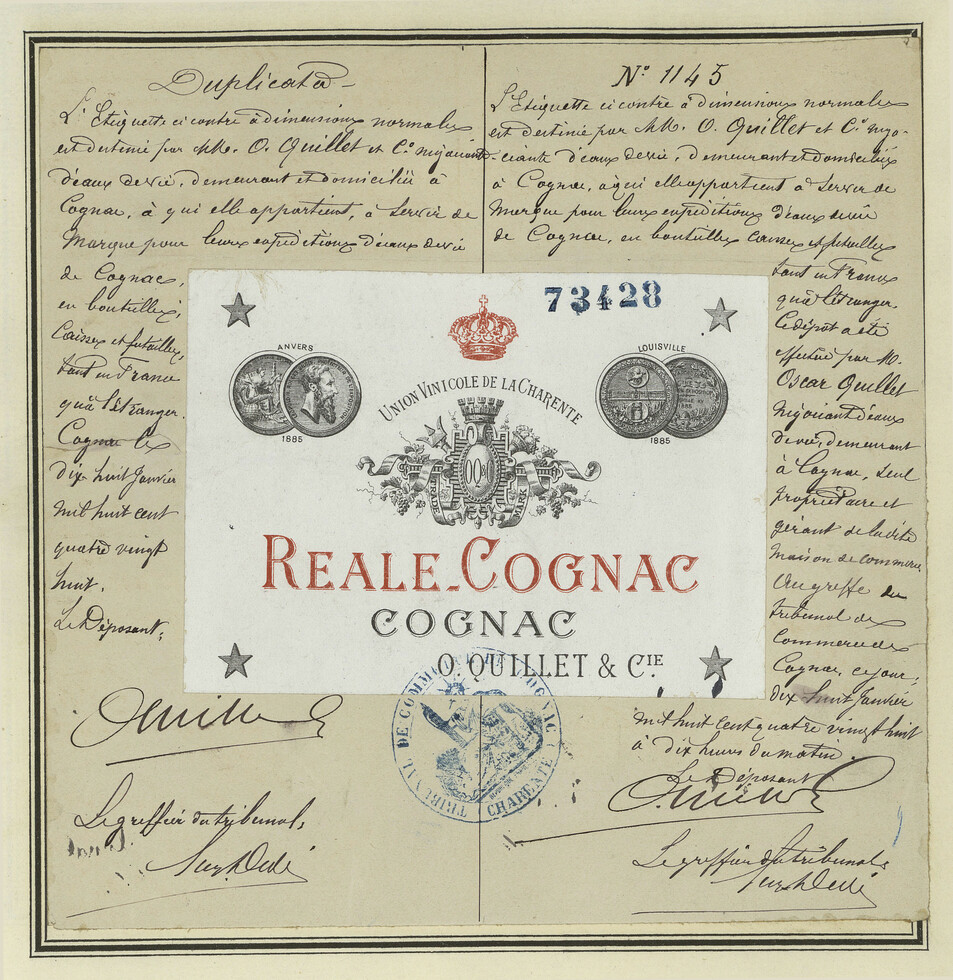 Duplicata
L'Etiquette ci contre à dimensions normales
est destinée par MM. O. Quillet et Cie négociants
d'eaux de vie, demeurant et domiciliés à
Cognac, à qui elle appartient, à servir de
Marque pour leurs expéditions d'eaux de vie
de Cognac,
en bouteilles,
Caisses et futailles,
tant en France
qu'à l'étranger.
Cognac le
dix huit Janvier
mil huit cent
quatre vingt
huit.
Le Déposant,
Le greffier du tribunal,
No 1145
L'Etiquette ci contre à dimensions normales
est destinée par MM. O. Quillet et Cie négo-
ciants d'eaux de vie, demeurant et domiciliés
à Cognac, à qui elle appartient à servir de
Marque pour leurs expéditions d'eaux de vie
de Cognac, en bouteilles caisses et futailles
tant en France
qu'à l'étranger.
Le dépôt a été
effectué par M.
Oscar Quillet
négociant d'eaux
de vie, demeurant
à Cognac, seul
propriétaire et
gérant de la dite
maison de commerce
au greffe du
tribunal de
Commerce de
Cognac, ce jour,
dix huit Janvier
mil huit cent quatre vingt huit
à dix heures du matin.
Le Déposant
Le greffier du tribunal,
73428
ANVERS
1885
LOUISVILLE
1885
UNION VINICOLE DE LA CHARENTE
OQ&Co
TRADE MARK
REALE_COGNAC
COGNAC
O. QUILLET & CIE.
TRIBUNAL DE COMMERCE DE COGNAC
CHARENTE